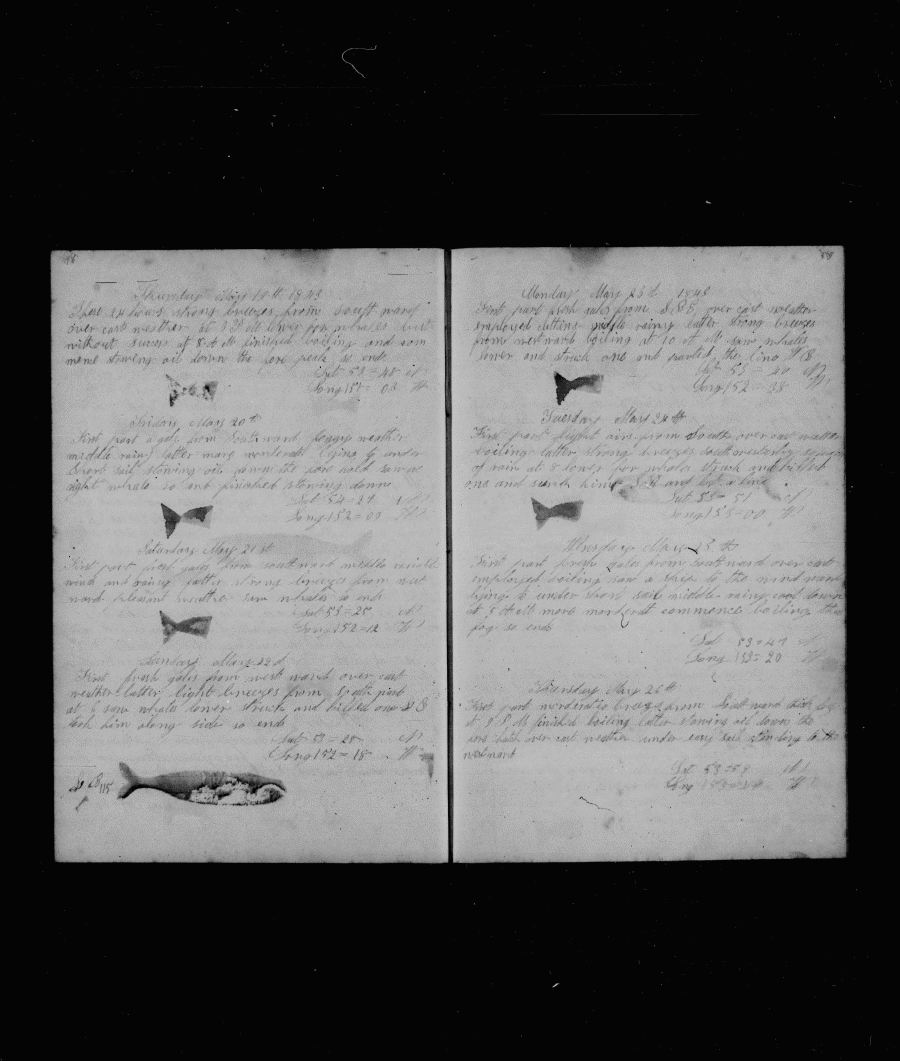 Thursday May 19th 1843
These 24 hours strong breezes from South ward
over cast weather at 3 P M lower for whales but
without success at 8 A M finished boiling and com
mence stowing oil down the fore peek so ends
Lat 53=48 N
Long 152=03 W
Friday May 20th
First part a gale from South ward foggy weather
middle rainy latter more moderate lying to under
Short sail stowing oil down the fore hold saw a
right whale so ends finished stowing down
Lat 54=29 N
Long 152=09 W
Saturday May 21st
First part fresh gales from southward middle variable
wind and rainy latter strong breezes from west
ward pleasant weather saw whales so ends
Lat 53=25 N
Long 152=12 W
Sunday May 22d
First fresh gales from west ward over cast
weather latter light breezes from South part
at 6 saw whales lower struck and killed one
took him along side so ends
Lat 53=28 N
Long 152=18 W
115
Monday May 23d 1843
First part fresh gales from over cast weather
employed cutting middle rainy latter strong breezes
from westward boiling at 10 A M saw whales
lower and struck one and parted the line
Lat 53=40 N
Long 152=38 W
Tuesday May 24th
First part light airs from South over cast weather
boiling latter strong breezes southwesterly
of rain at 8 lower for whales struck and killed
one and sunk him and lost a line
Lat 53=51 N
Long 153=00 W
Wensday May 25th
First part fresh gales from Southward over cast
employed boiling saw a Ship to the wind ward
lying to under short sail middle rainy cool down
at 5 A M more moderat commence boiling thick
fog so ends
Lat 53=47 N
Long 153=20 W
Thursday May 26th
First part moderate breezes from South ward thick fog
at 9 P M finished boiling latter stowing oil down the
fore hatch over cast weather under easy sail standing to the
westward
Lat 53=59 N
Long W